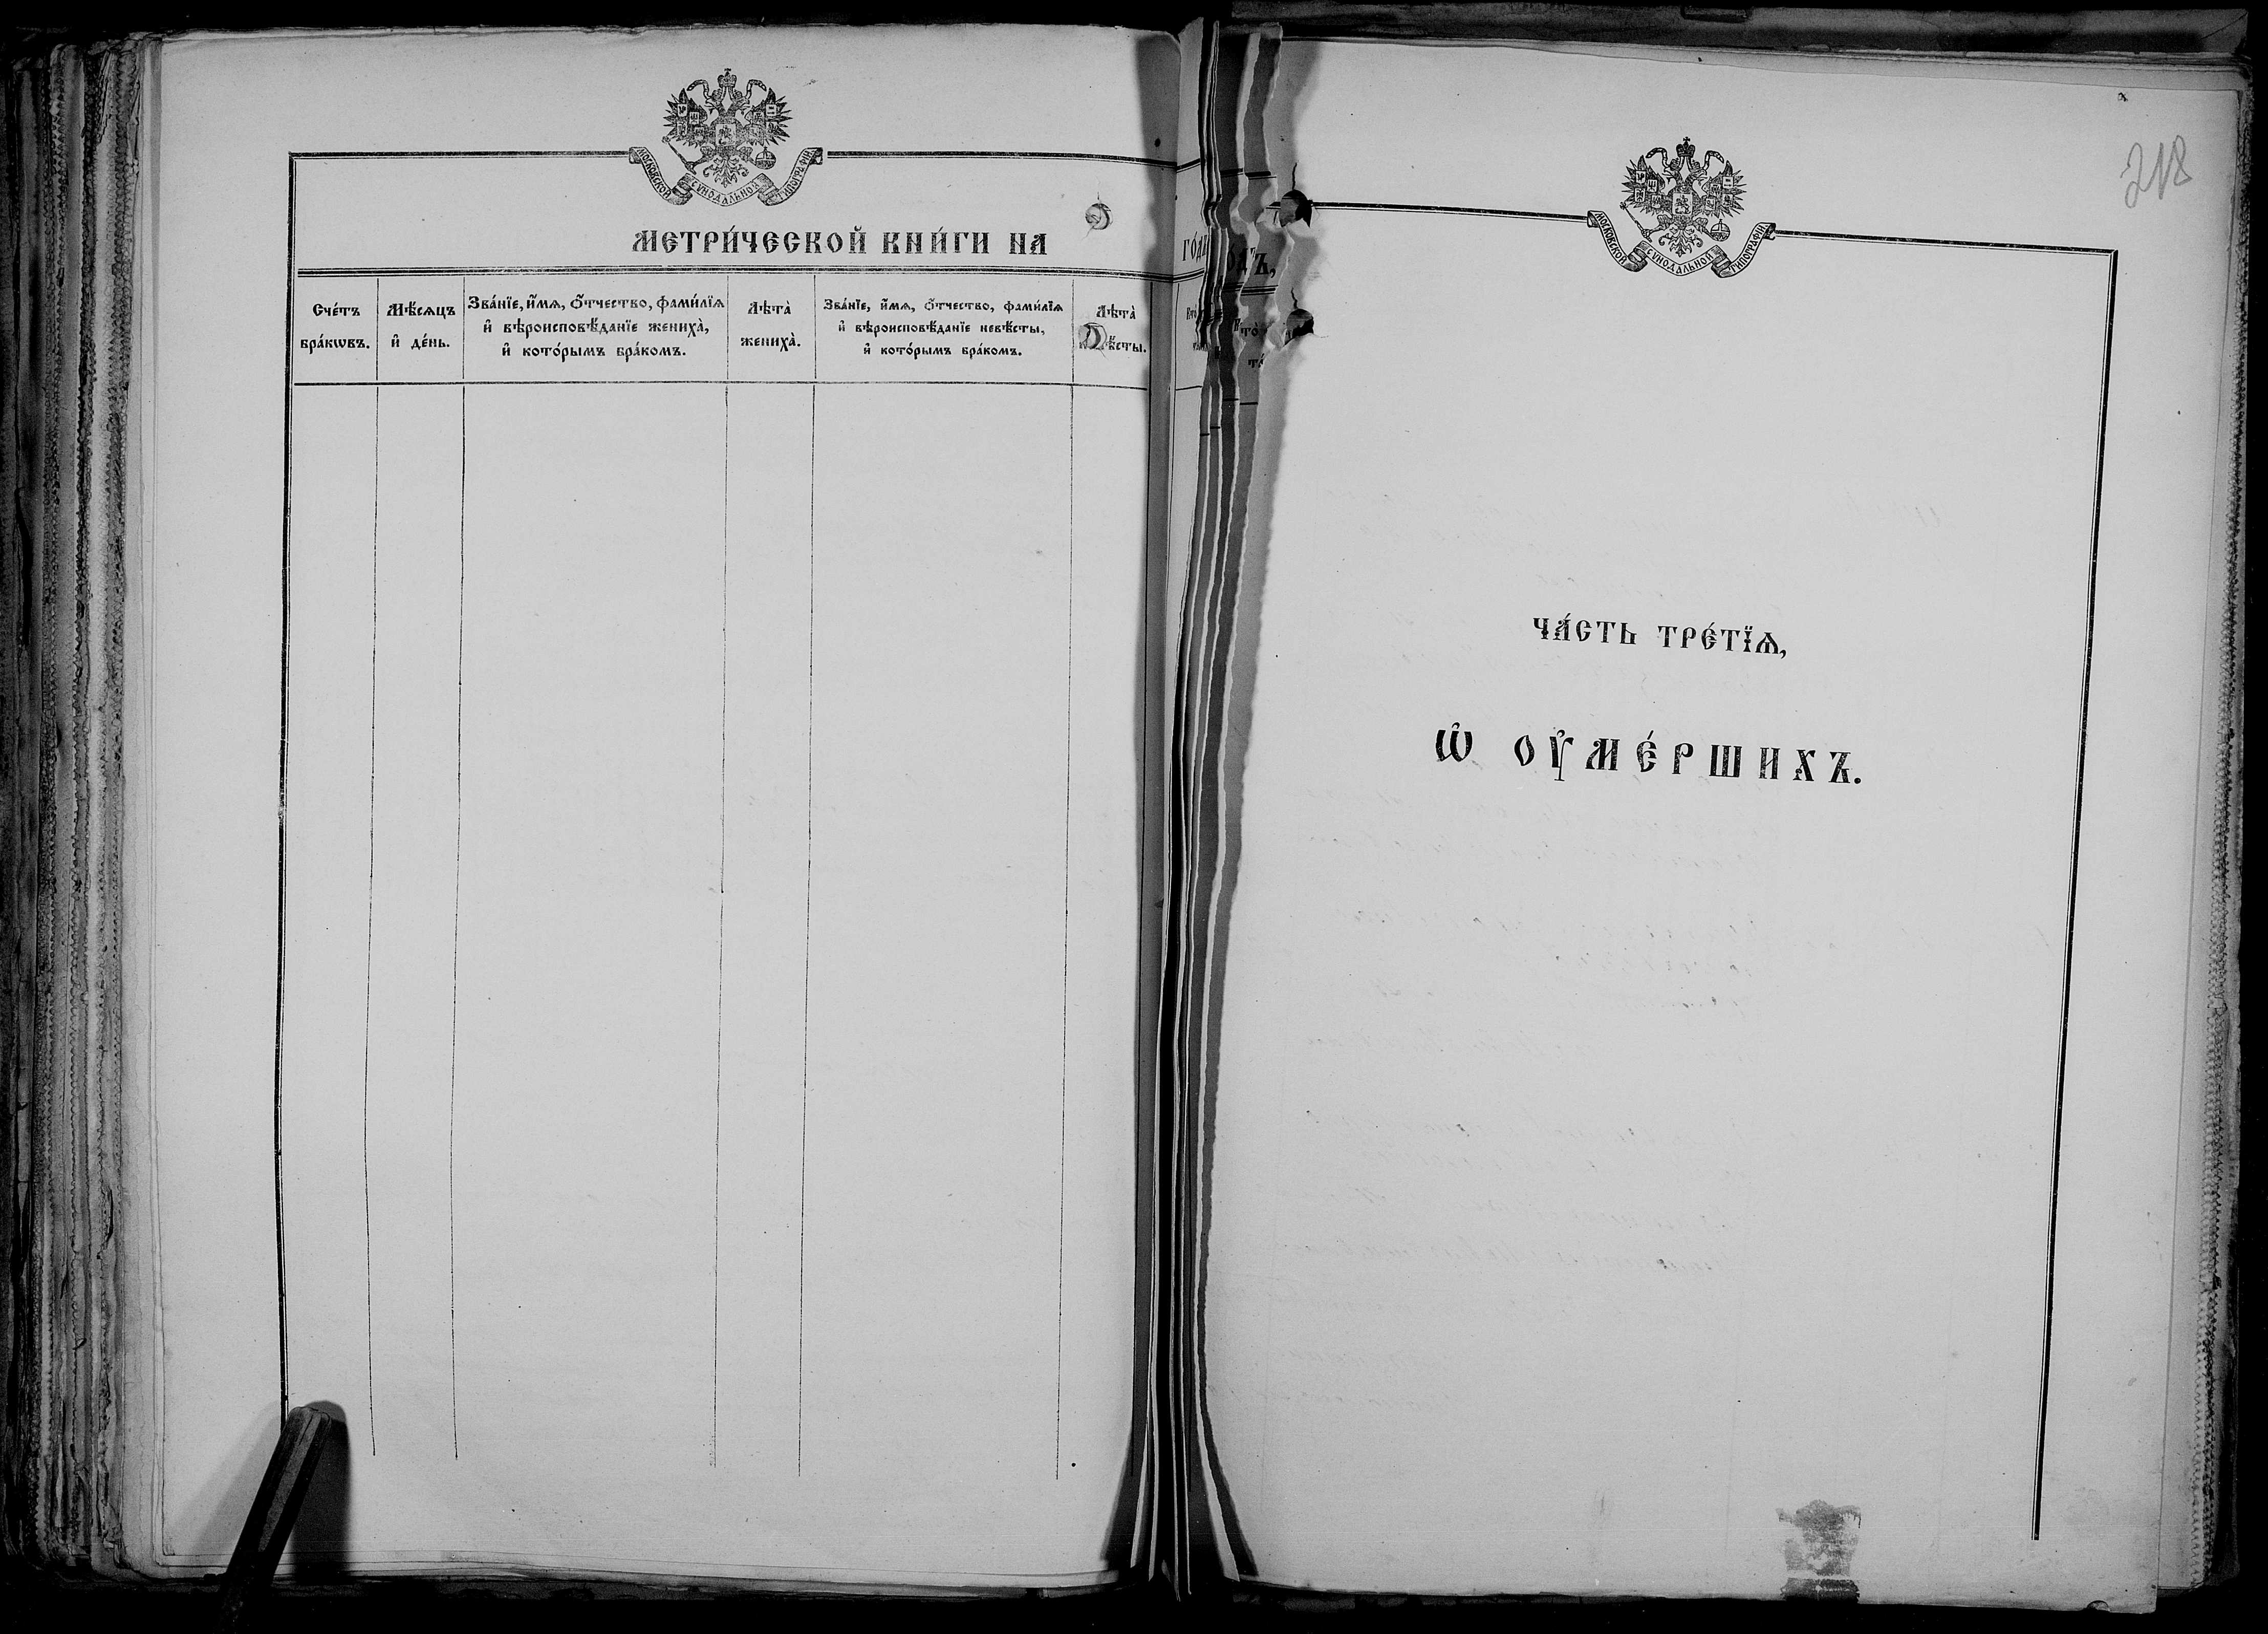 МОСКОВСКОЙ СѴНОДАЛЬНОЙ ТИПОГРАФІИ
МЕТРИ́ЧЕСКОЙ КНИ́ГИ НА
Сче́тъ бра́кѡвъ.
Мѣ́сяцъ и҆ де́нь.
Зва́нїе, и҆́мѧ, ѻ҆́тчество, фами́лїѧ
и҆ вѣроисповѣ́данїе женихà,
и҆ кото́рымъ бра́комъ.
Лѣтà женихà.
Зва́нїе, и҆́мѧ, ѻ҆́тчество, фами́лїѧ
и҆ вѣроисповѣ́данїе невѣ́сты,
и҆ кото́рымъ бра́комъ.
Лѣтà
218
МОСКОВСКОЙ СѴНОДАЛЬНОЙ ТИПОГРАФІИ
ЧА́СТЬ ТРЕ́ТЇѦ,
Ѡ҆ ОУ҆МЕ́РШИХЪ.